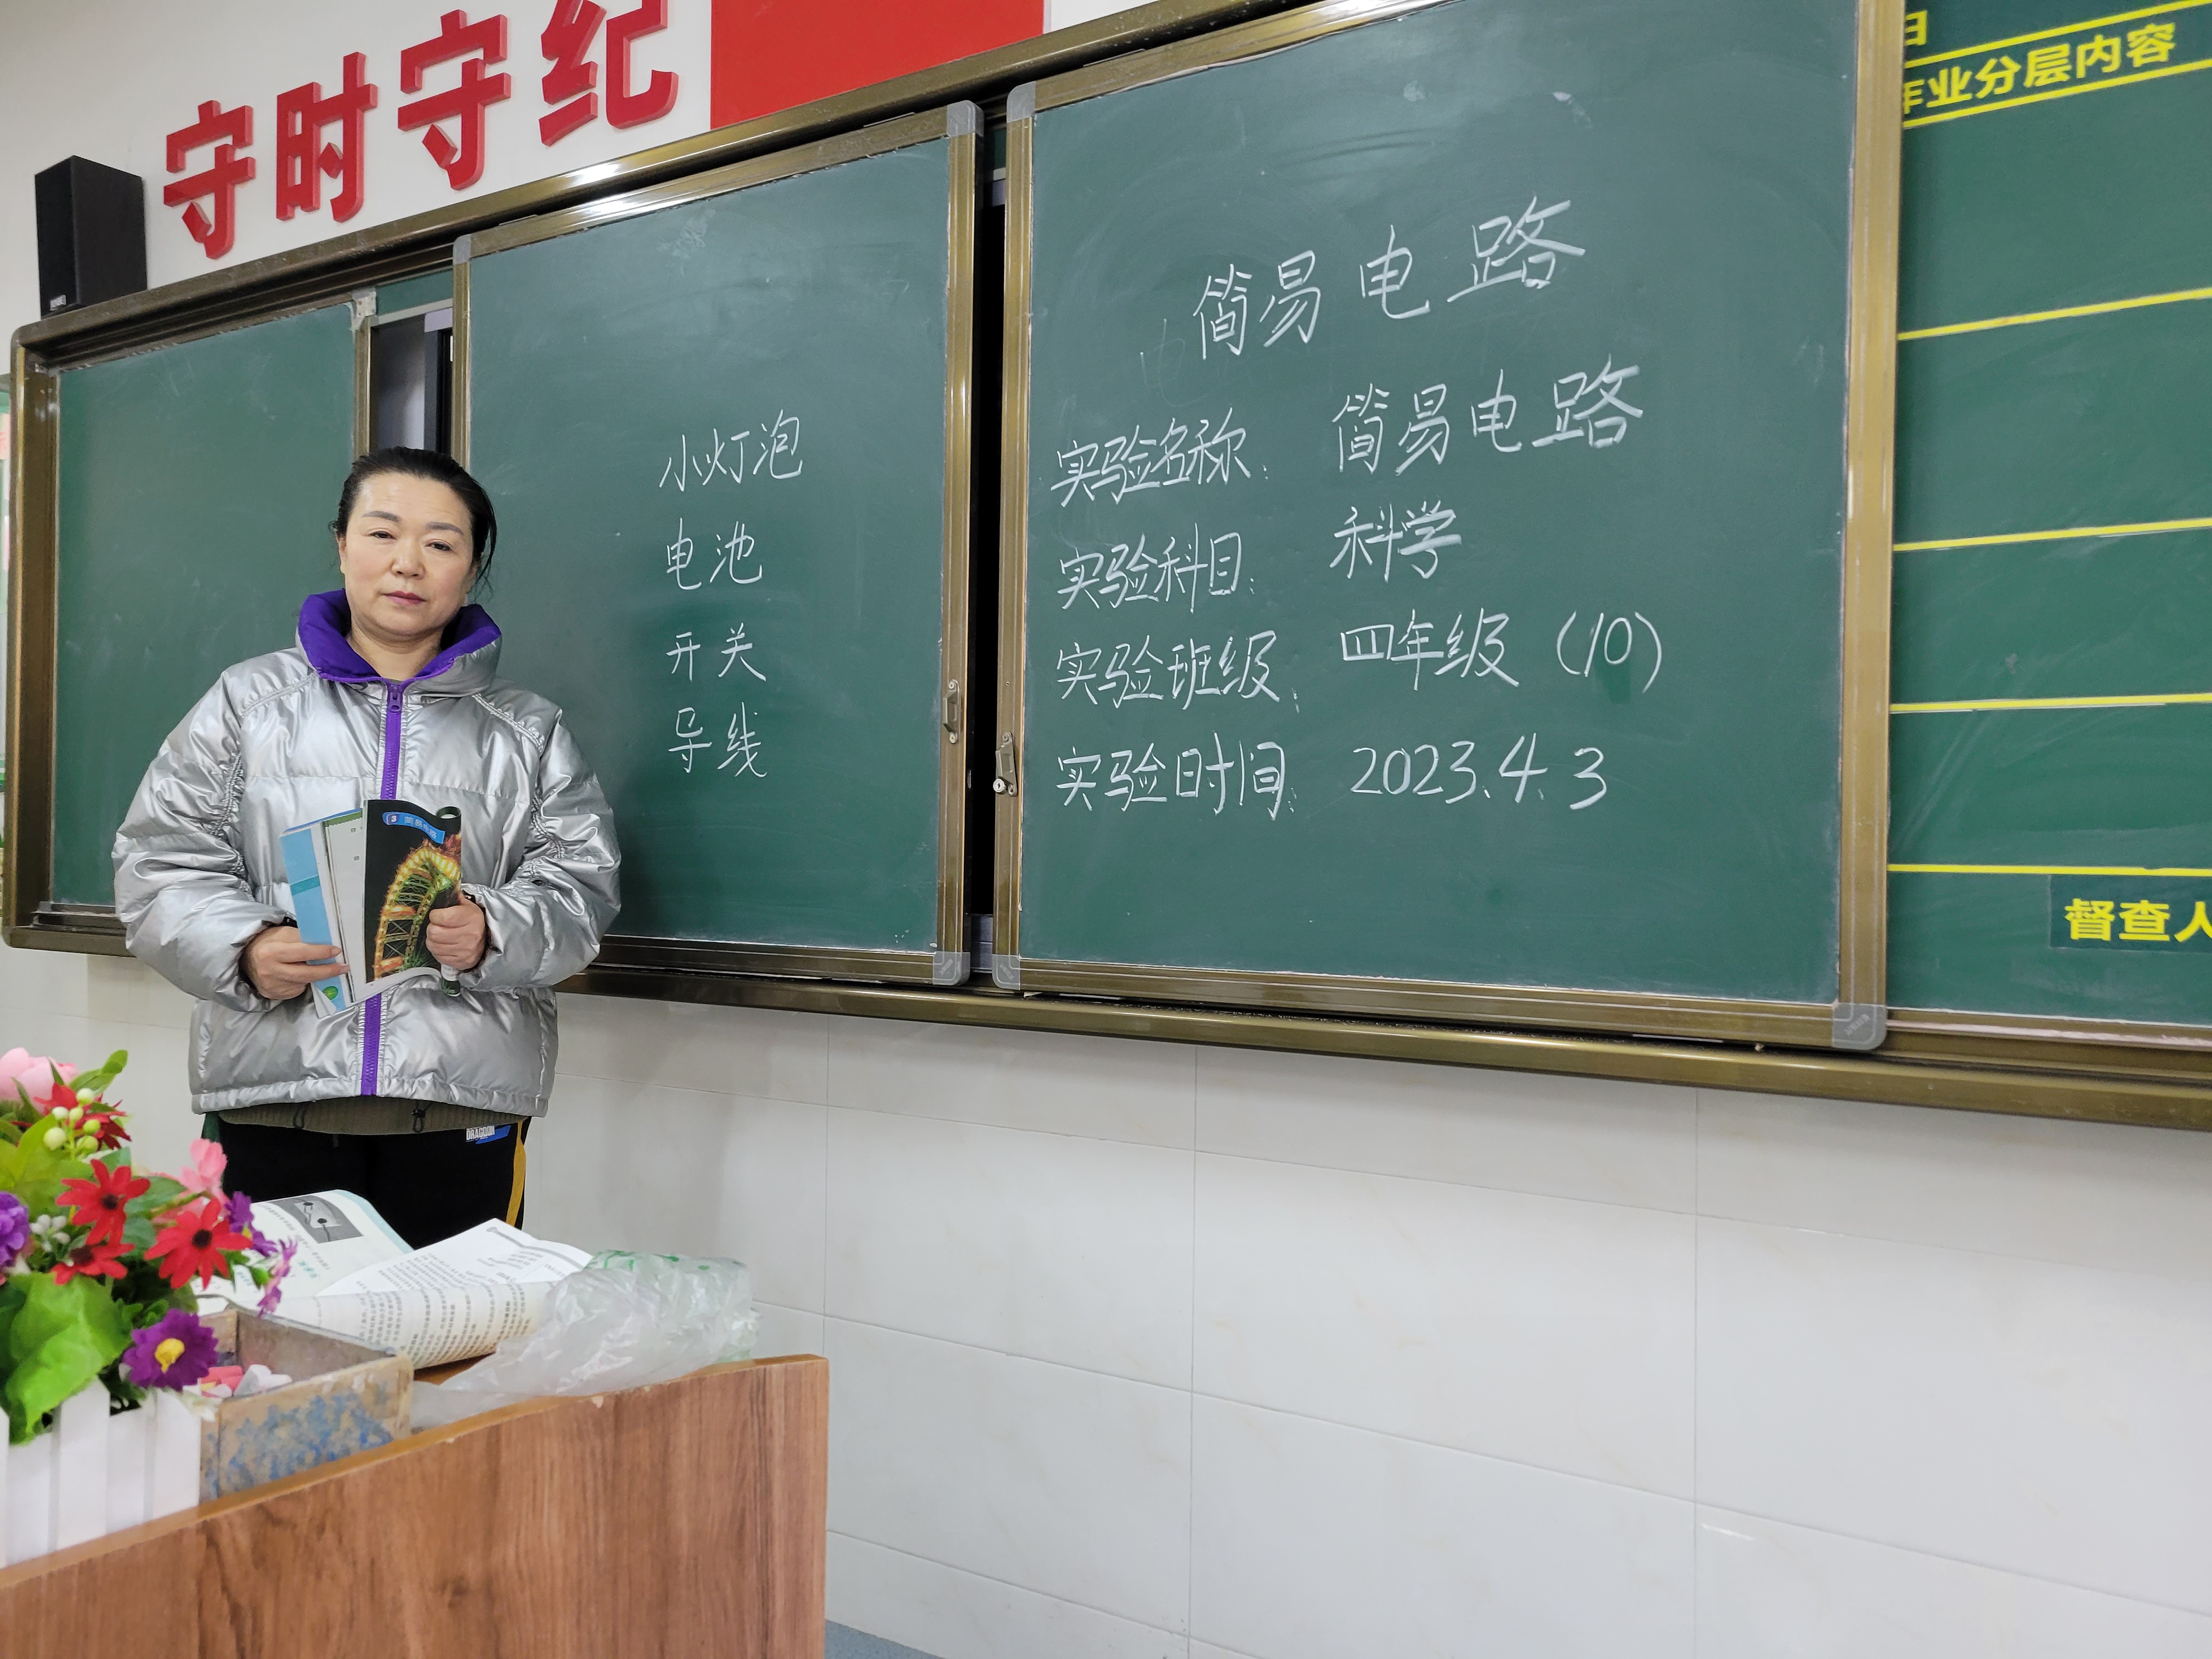 守时守纪
业分层内容
简易电路
小灯泡
电池
开关
导线
实验名称: 简易电路
实验科目: 科学
实验班级: 四年级 (10)
实验时间: 2023.4.3
督查人
3 简易电路